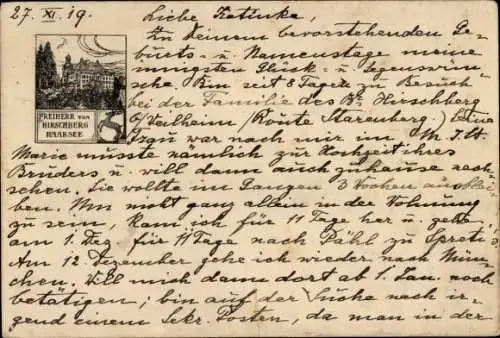 27. XI. 19.
Liebe Katinka,
Zu Deinem bevorstehenden Ge-
burts- u. Namenstage meine
innigsten Glück- u. Segenswün-
sche. Bin seit 8 Tagen zu Besuch
bei der Familie des Bn Hirschberg
b/Weilheim (Route Starenberg.)
Frau war nach mir im M. I. St.
Marie musste nämlich zur Hochzeit ihres
Bruders u. will dann auch zuhause nach-
sehen. Sie wollte im Ganzen 3 Wochen ausblei-
ben. Um nicht ganz allein in der Wohnung
zu sein, kam ich für 11 Tage her u. gehe
am 1. Dez. für 11 Tage nach Pähl zu Spreti's
Am 12. Dezember gehe ich wieder nach Mün-
chen. Will mich dann dort ab 1. Jan. noch
betätigen; bin auf der Suche nach ir-
gend einem Sekr. Posten, da man in der
FREIHERR VON
HIRSCHBERG
HAARSEE